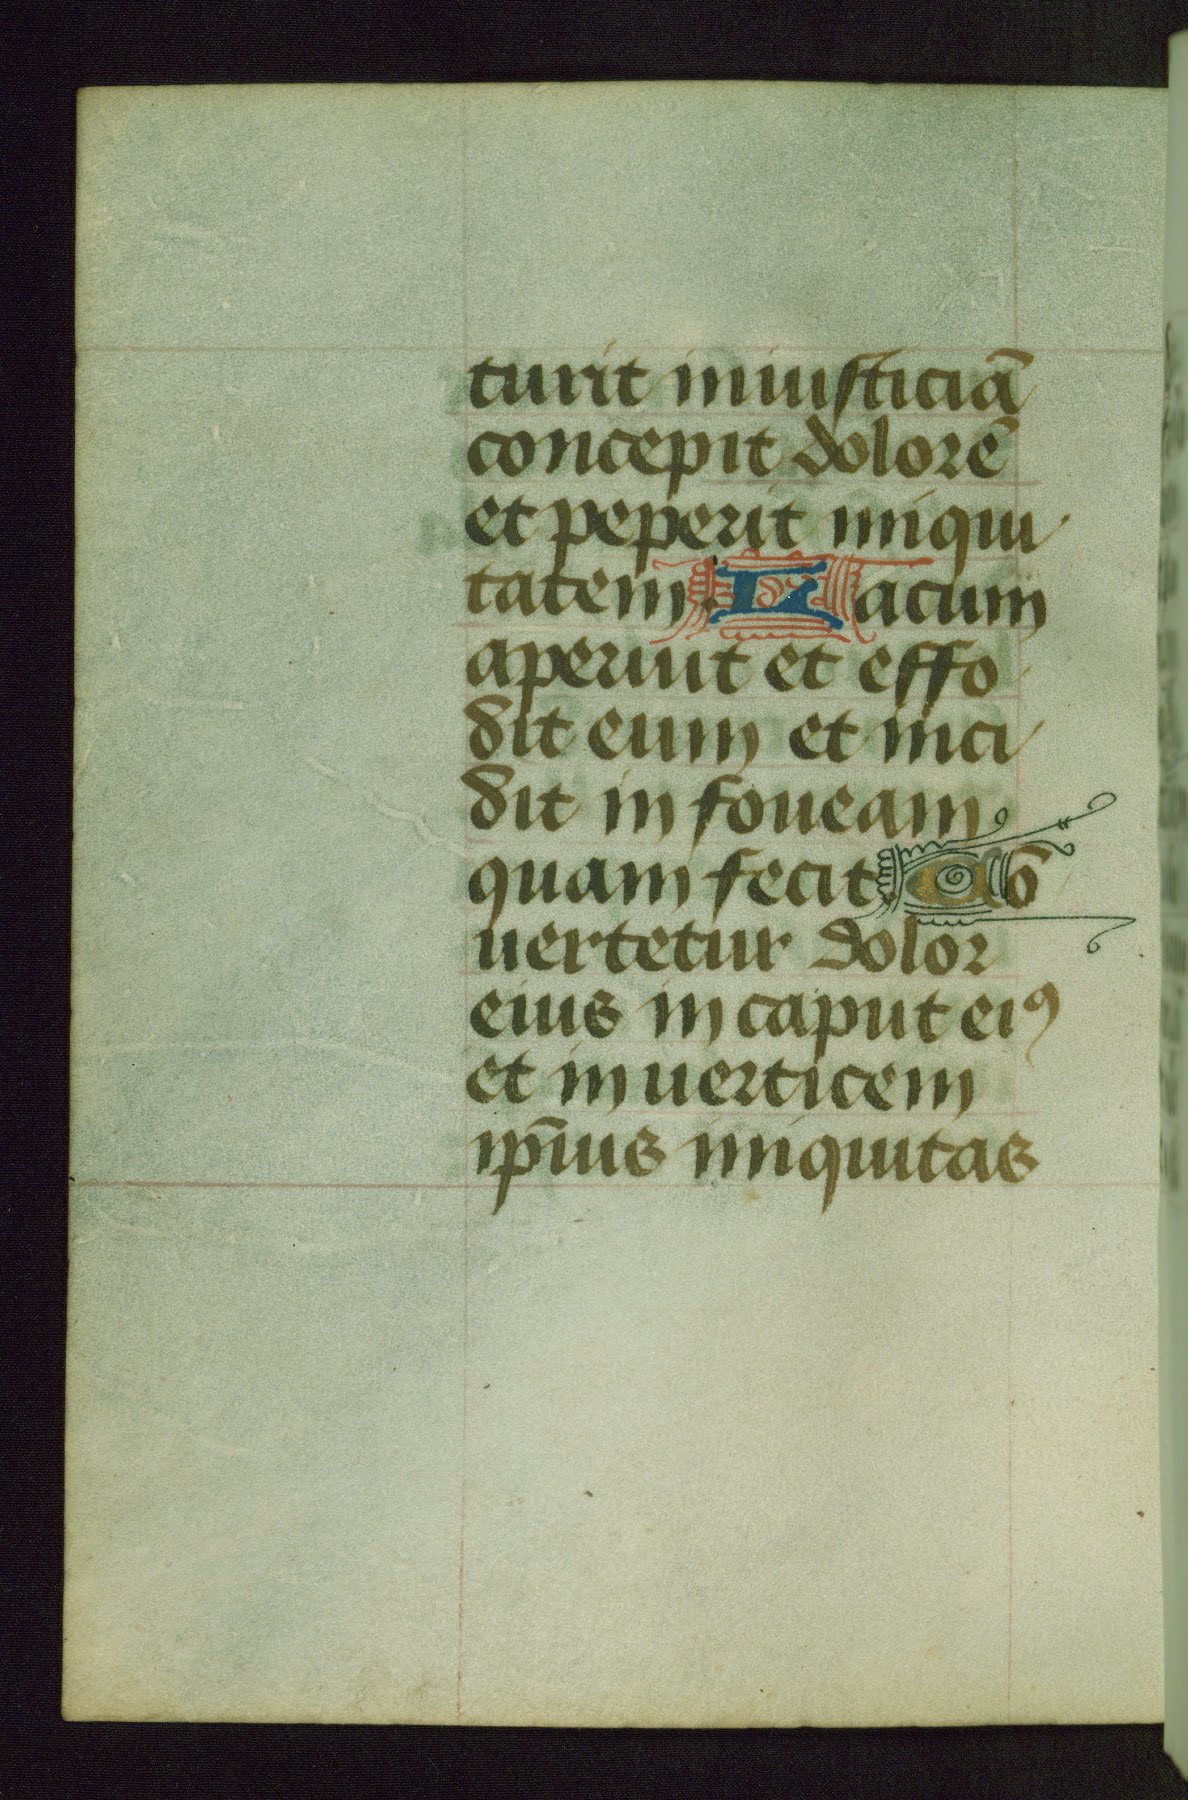 turit iniusticiā
concepit dolorē
et peperit iniqui
tatem. Lacum
aperuit et effo
dit eum et inci
dit in foueam
quam fecit. Cō
uertetur dolor
eius in caput eiꝰ
et in uerticem
ip̄ius iniquitas